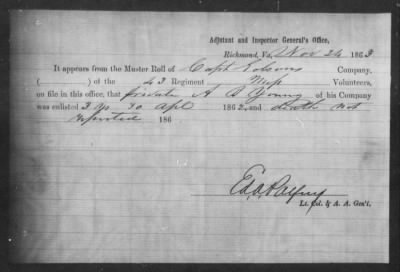 Adjutant and Inspector General's Office,
Richmond, Va, Nov 24 1863
It appears from the Muster Roll of Capt Company,
( ) of the 43 Regiment Miss Volunteers,
on file in this office, that private A B Young of his Company
was enlisted 10 Apl 1862, and death not
reported 186
Lt. Col. & A. A. Gen'l.